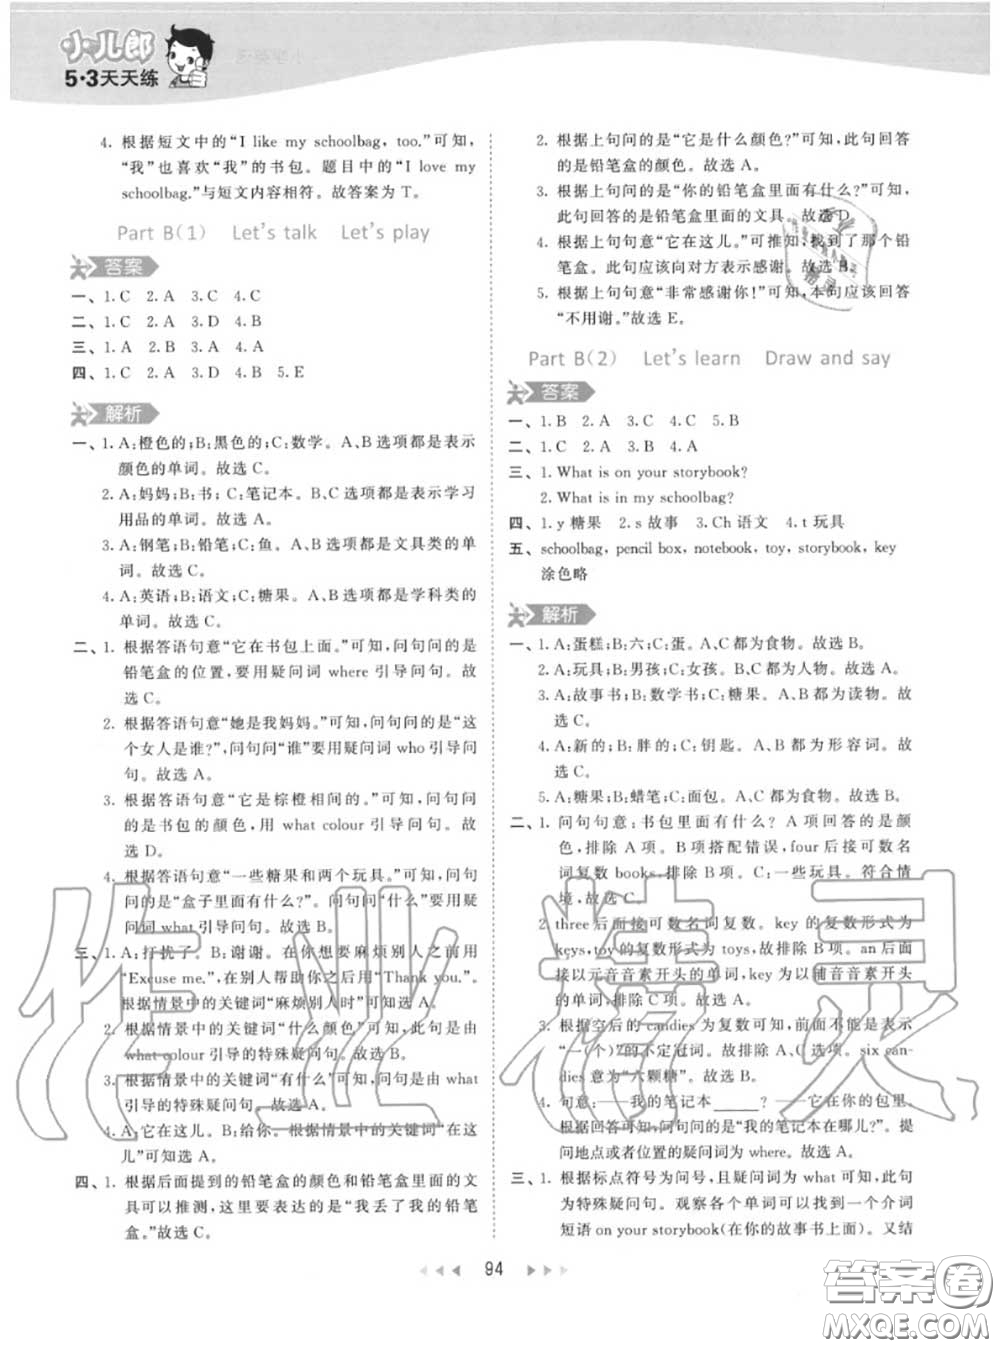 小儿郎
5·3天天练
4. 根据短文中的“I like my schoolbag, too.”可知，
“我”也喜欢“我”的书包。题目中的“I love my
schoolbag.”与短文内容相符。故答案为 T。
Part B(1) Let's talk Let's play
答案
一、1. C 2. A 3. C 4. C
二、1. C 2. A 3. D 4. B
三、1. A 2. B 3. A 4. A
四、1. C 2. A 3. D 4. B 5. E
解析
一、1. A:橙色的;B:黑色的;C:数学。A、B选项都是表示
颜色的单词。故选 C。
2. A:妈妈;B:书;C:笔记本。B、C选项都是表示学习
用品的单词。故选 A。
3. A:钢笔;B:铅笔;C:鱼。A、B选项都是文具类的单
词。故选 C。
4. A:英语;B:语文;C:糖果。A、B选项都是学科类的
单词。故选 C。
二、1. 根据答语句意“它在书包上面。”可知，问句问的是
铅笔盒的位置，要用疑问词 where 引导问句。故
选 C。
2. 根据答语句意“她是我妈妈。”可知，问句问的是“这
个女人是谁?”，问句问“谁”要用疑问词 who 引导问
句。故选 A。
3. 根据答语句意“它是棕橙相间的。”可知，问句问
的是书包的颜色，用 what colour 引导问句。故
选 D。
4. 根据答语句意“一些糖果和两个玩具。”可知，问句
问的是“盒子里面有什么?”问句问“什么”要用疑问
词 what 引导问句。故选 B。
三、1. A:打扰了;B:谢谢。在你想要麻烦别人之前用
“Excuse me.”,在别人帮助你之后用“Thank you.”。
根据情景中的关键词“麻烦别人时”可知选 A。
2. 根据情景中的关键词“什么颜色”可知，此句是由
what colour 引导的特殊疑问句。故选 B。
3. 根据情景中的关键词“有什么”可知，问句是由 what
引导的特殊疑问句。故选 A。
4. A:它在这儿。B:给你。根据情景中的关键词“在这
儿”可知选 A。
四、1. 根据后面提到的铅笔盒的颜色和铅笔盒里面的文
具可以推测，这里要表达的是“我丢了我的铅笔
盒。”故选 C。
2. 根据上句问的是“它是什么颜色?”可知，此句回答
的是铅笔盒的颜色。故选 A。
3. 根据上句问的是“你的铅笔盒里面有什么?”可知，
此句回答的是铅笔盒里面的文具。故选 D。
4. 根据上句句意“它在这儿。”可推知，找到了那个铅
笔盒。此句应该向对方表示感谢。故选 B。
5. 根据上句句意“非常感谢你!”可知，本句应该回答
“不用谢。”故选 E。
Part B(2) Let's learn Draw and say
答案
一、1. B 2. A 3. C 4. C 5. B
二、1. C 2. A 3. B 4. A
三、1. What is on your storybook?
2. What is in my schoolbag?
四、1. y 糖果 2. s 故事 3. Ch 语文 4. t 玩具
五、schoolbag, pencil box, notebook, toy, storybook, key
涂色略
解析
一、1. A:蛋糕;B:六;C:蛋。A、C都为食物。故选 B。
2. A:玩具;B:男孩;C:女孩。B、C都为人物。故选 A。
3. A:故事书;B:数学书;C:糖果。A、B都为读物。故
选 C。
4. A:新的;B:胖的;C:钥匙。A、B都为形容词。故
选 C。
5. A:糖果;B:蜡笔;C:面包。A、C都为食物。故选 B。
二、1. 问句句意:书包里面有什么? A 项回答的是颜
色，排除 A 项。B 项搭配错误，four 后接可数名
词复数 books，排除 B 项。C:一些玩具。符合情
境，故选 C。
2. three 后面接可数名词复数。key 的复数形式为
keys,toy 的复数形式为 toys,故排除 B 项。an 后面
接以元音音素开头的单词，key 为以辅音音素开头
的单词，排除 C 项。故选 A。
3. 根据空后的 candies 为复数可知，前面不能是表示
“一(个)”的不定冠词。故排除 A、C 选项。six can-
dies 意为“六颗糖”。故选 B。
4. 句意:——我的笔记本______? ——它在你的包里。
根据回答可知，问句问的是“我的笔记本在哪儿?”。提
问地点或者位置的疑问词为 where。故选 A。
三、1. 根据标点符号为问号，且疑问词为 what 可知，此句
为特殊疑问句。观察各个单词可以找到一个介词
短语 on your storybook(在你的故事书上面)。又结
94
作业精灵
答案圈
MXQE.COM